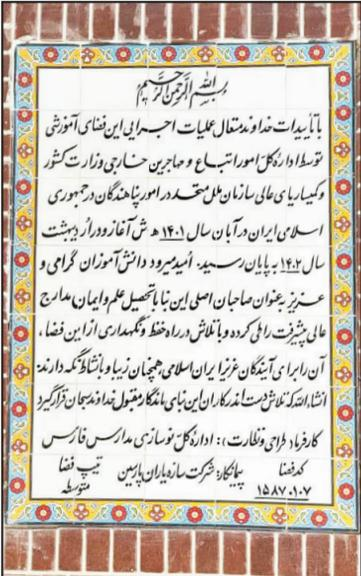 بسم الله الرحمن الرحیم
با تأییدات خداوند متعال عملیات اجرایی این فضای آموزشی
توسط اداره کل امور اتباع و مهاجرین خارجی وزارت کشور
و کمیساریای عالی سازمان ملل متحد در امور پناهندگان در جمهوری
اسلامی ایران در آبان سال ۱۴۰۱ ه ش آغاز و در اردیبهشت
سال ۱۴۰۲ به پایان رسید. امید میرود دانش آموزان گرامی و
عزیز به عنوان صاحبان اصلی این بنا با تحصیل علم و ایمان مدارج
عالی پیشرفت را طی کرده و با تلاش در راه حفظ و نگهداری از این فضا،
آن را برای آیندگان عزیز ایران اسلامی همچنان زیبا و با نشاط نگه دارند.
انشاءالله که تلاش دست اندرکاران این بنای ماندگار مقبول خداوند سبحان قرار گیرد
کارفرما، طراحی و نظارت: اداره کل نوسازی مدارس فارس
کد فضا پیمانکار: شرکت سازه یاران پارسین تیپ فضا
۱۵۸۷۰۱۰۷ متوسطه